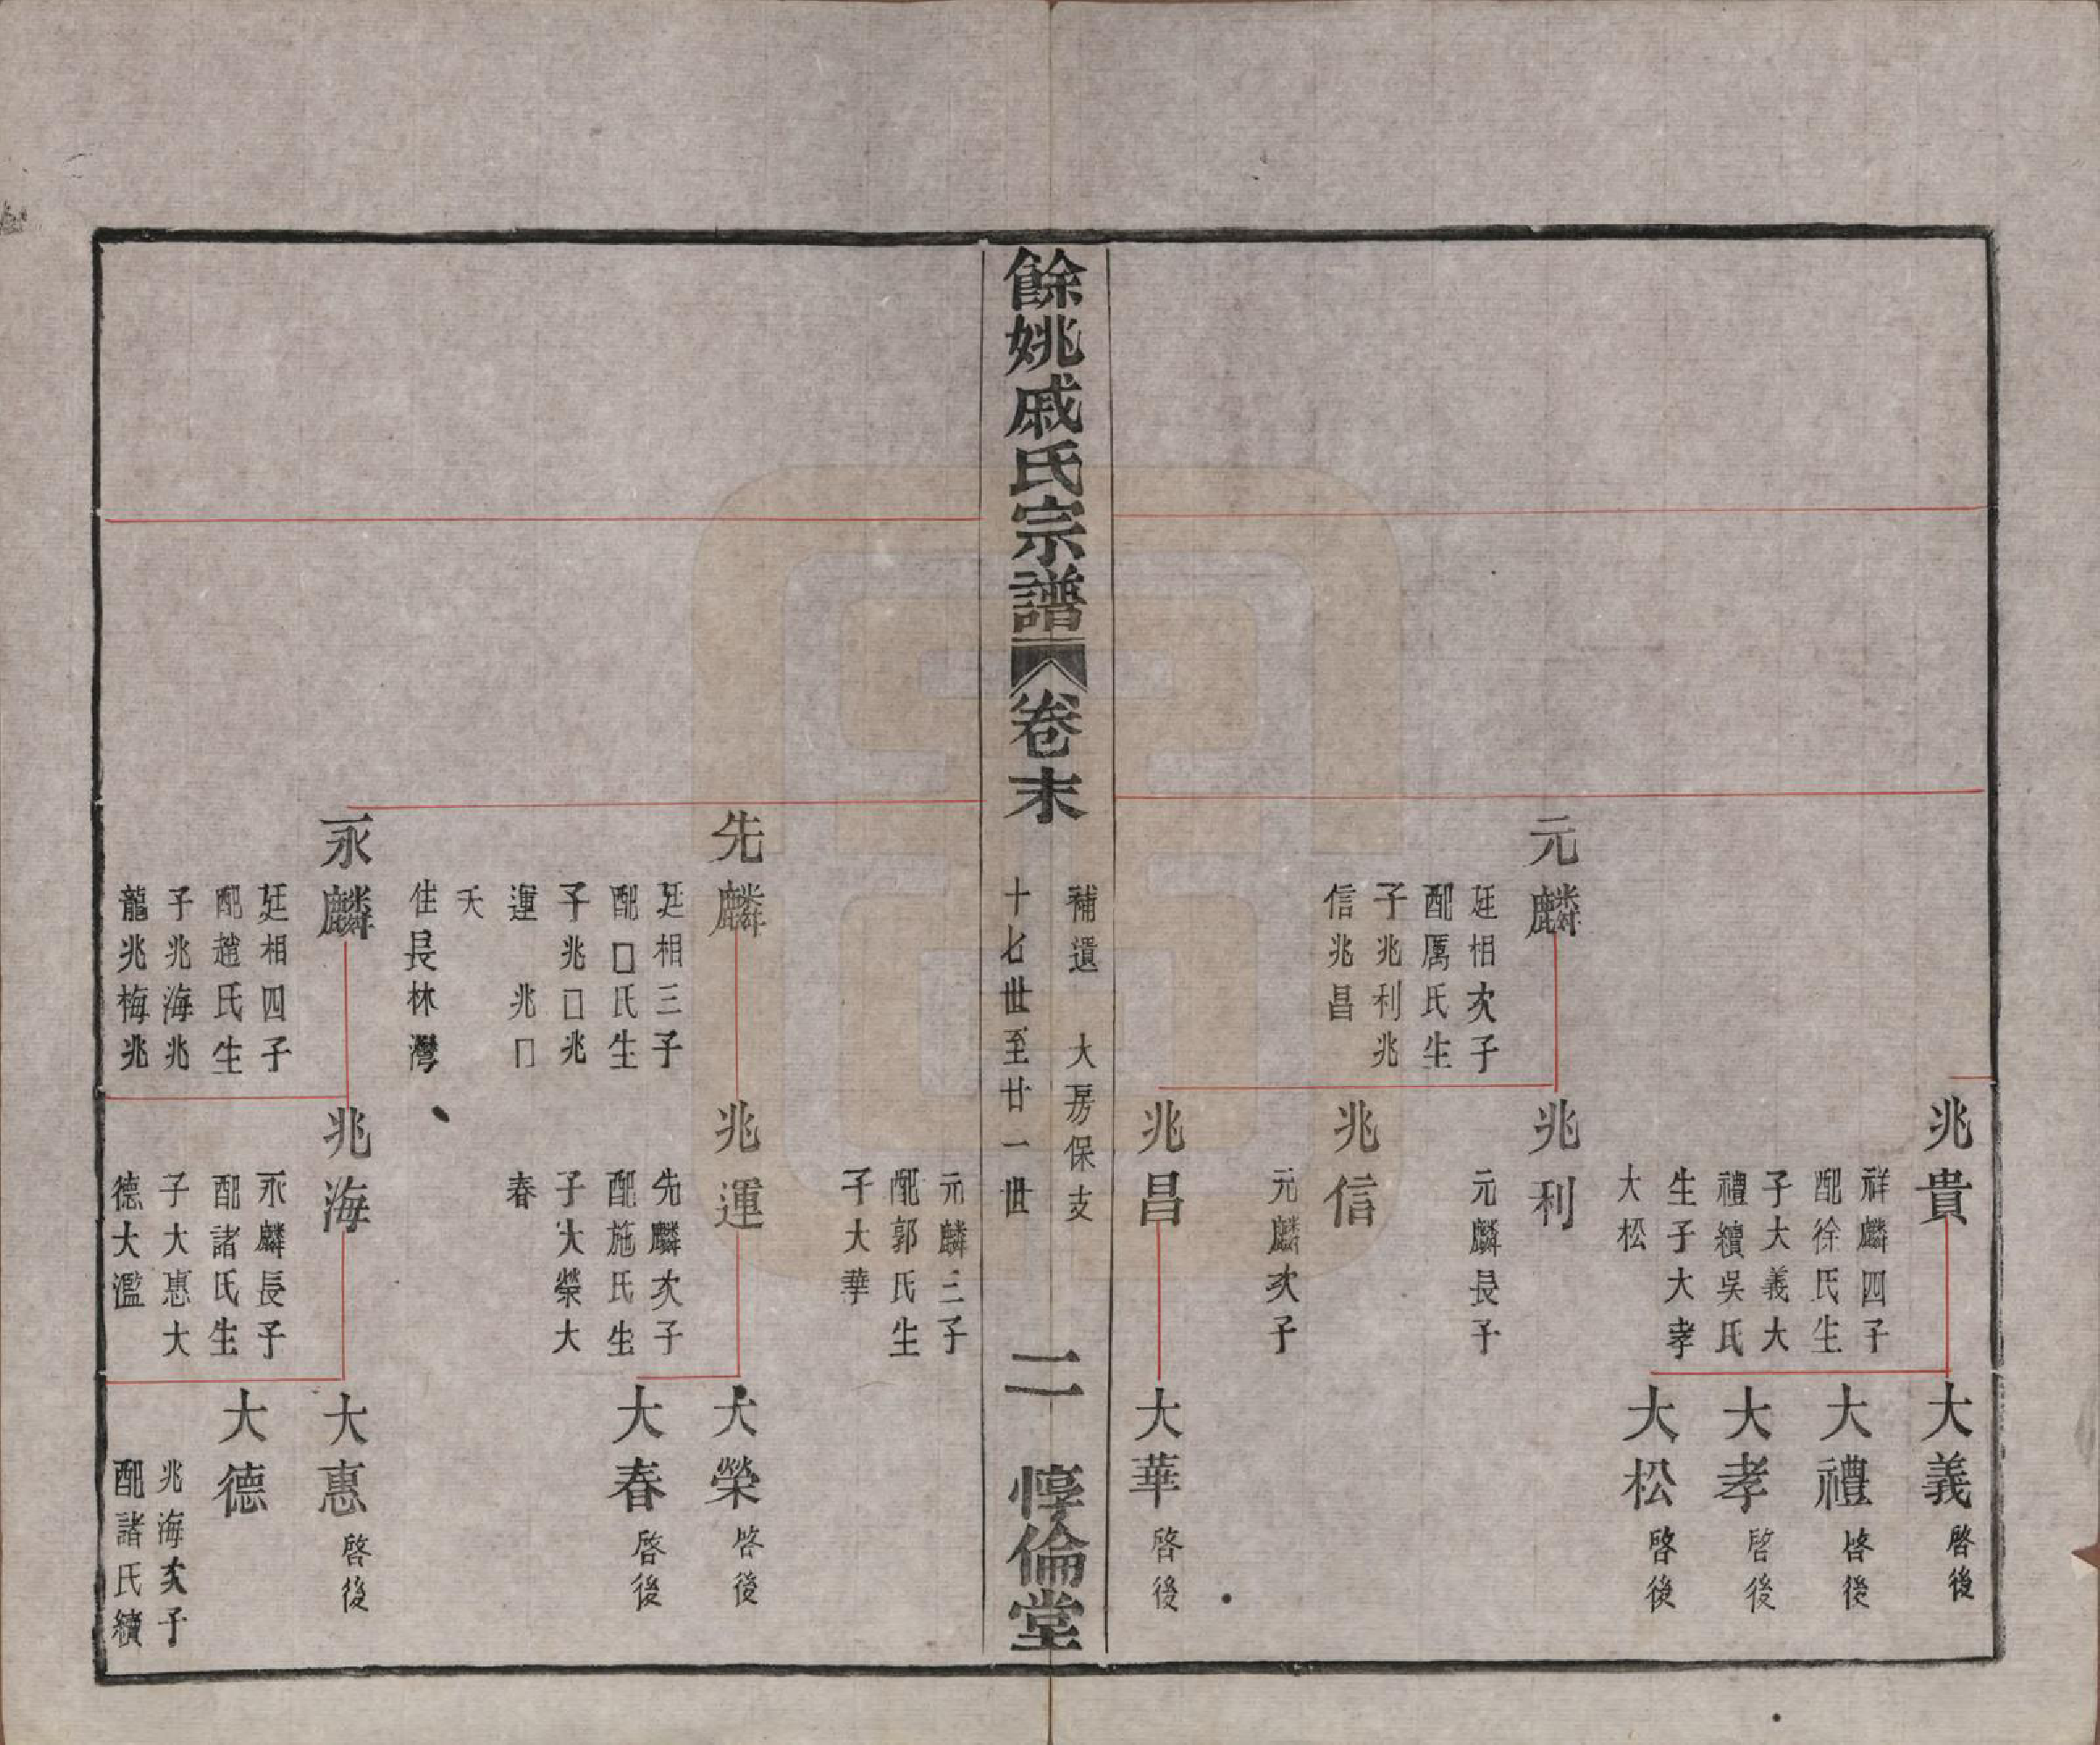 兆貴
祥麟四子
配徐氏生
子大義大
禮續吳氏
生子大孝
大松
大義
啓後
大禮
啓後
大孝
啓後
大松
啓後
元麟
廷相次子
配厲氏生
子兆利兆
信兆昌
兆利
元麟長子
兆信
元麟次子
兆昌
大華
啓後
餘姚戚氏宗譜
卷末
補遺 大房保支
十七世至廿一世
二
惇倫堂
元麟三子
配郭氏生
子大華
先麟
廷相三子
配口氏生
子兆口兆
運 兆口
夭
住長林灣
兆運
先麟次子
配施氏生
子大榮大
春
大榮
啓後
大春
啓後
永麟
廷相四子
配趙氏生
子兆海兆
龍兆梅兆
兆海
永麟長子
配諸氏生
子大惠大
德大濫
大惠
啓後
大德
兆海次子
配諸氏續